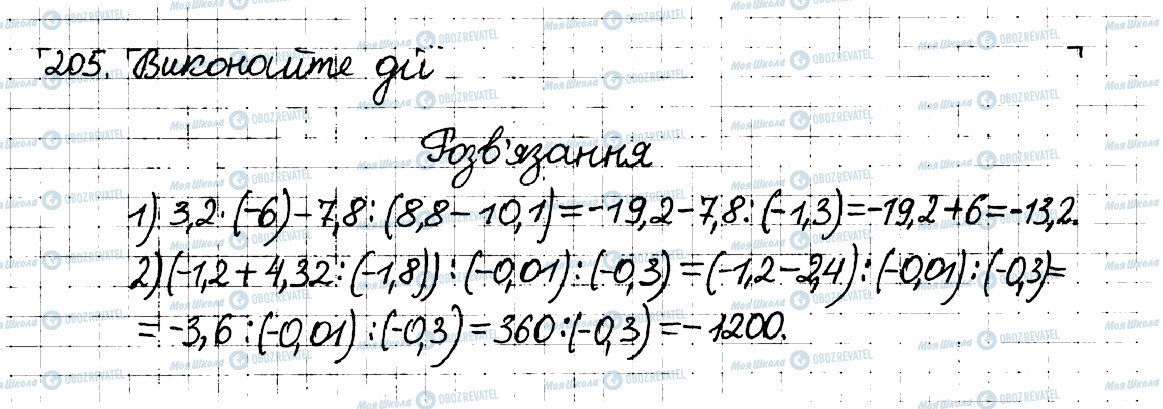 205. Виконайте дії
Розв'язання
1) 3,2·(-6)-7,8:(8,8-10,1)=-19,2-7,8:(-1,3)=-19,2+6=-13,2.
2) (-1,2+4,32:(-1,8)):(-0,01):(-0,3)=(-1,2-2,4):(-0,01):(-0,3)=
=-3,6:(-0,01):(-0,3)=360:(-0,3)=-1200.